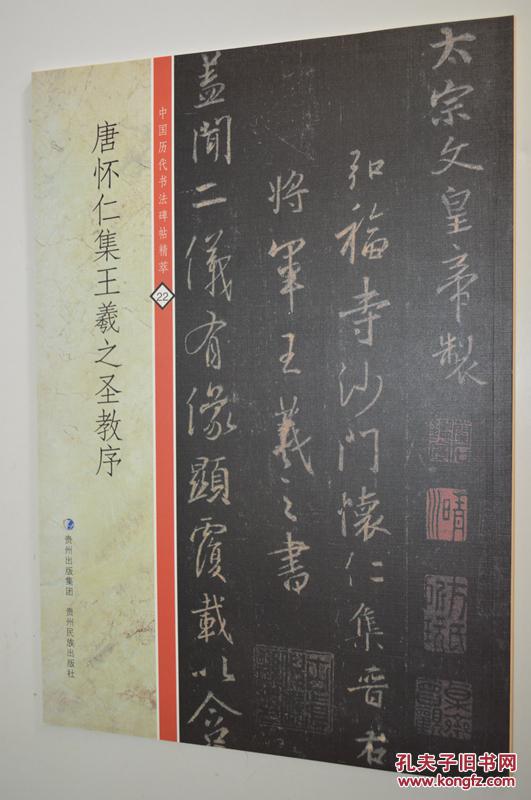 太宗文皇帝製
弘福寺沙門懷仁集晉右
將軍王羲之書
蓋聞二儀有像顯覆載以含
中国历代书法碑帖精萃
22
唐怀仁集王羲之圣教序
贵州出版集团 贵州民族出版社
孔夫子旧书网
www.kongfz.com